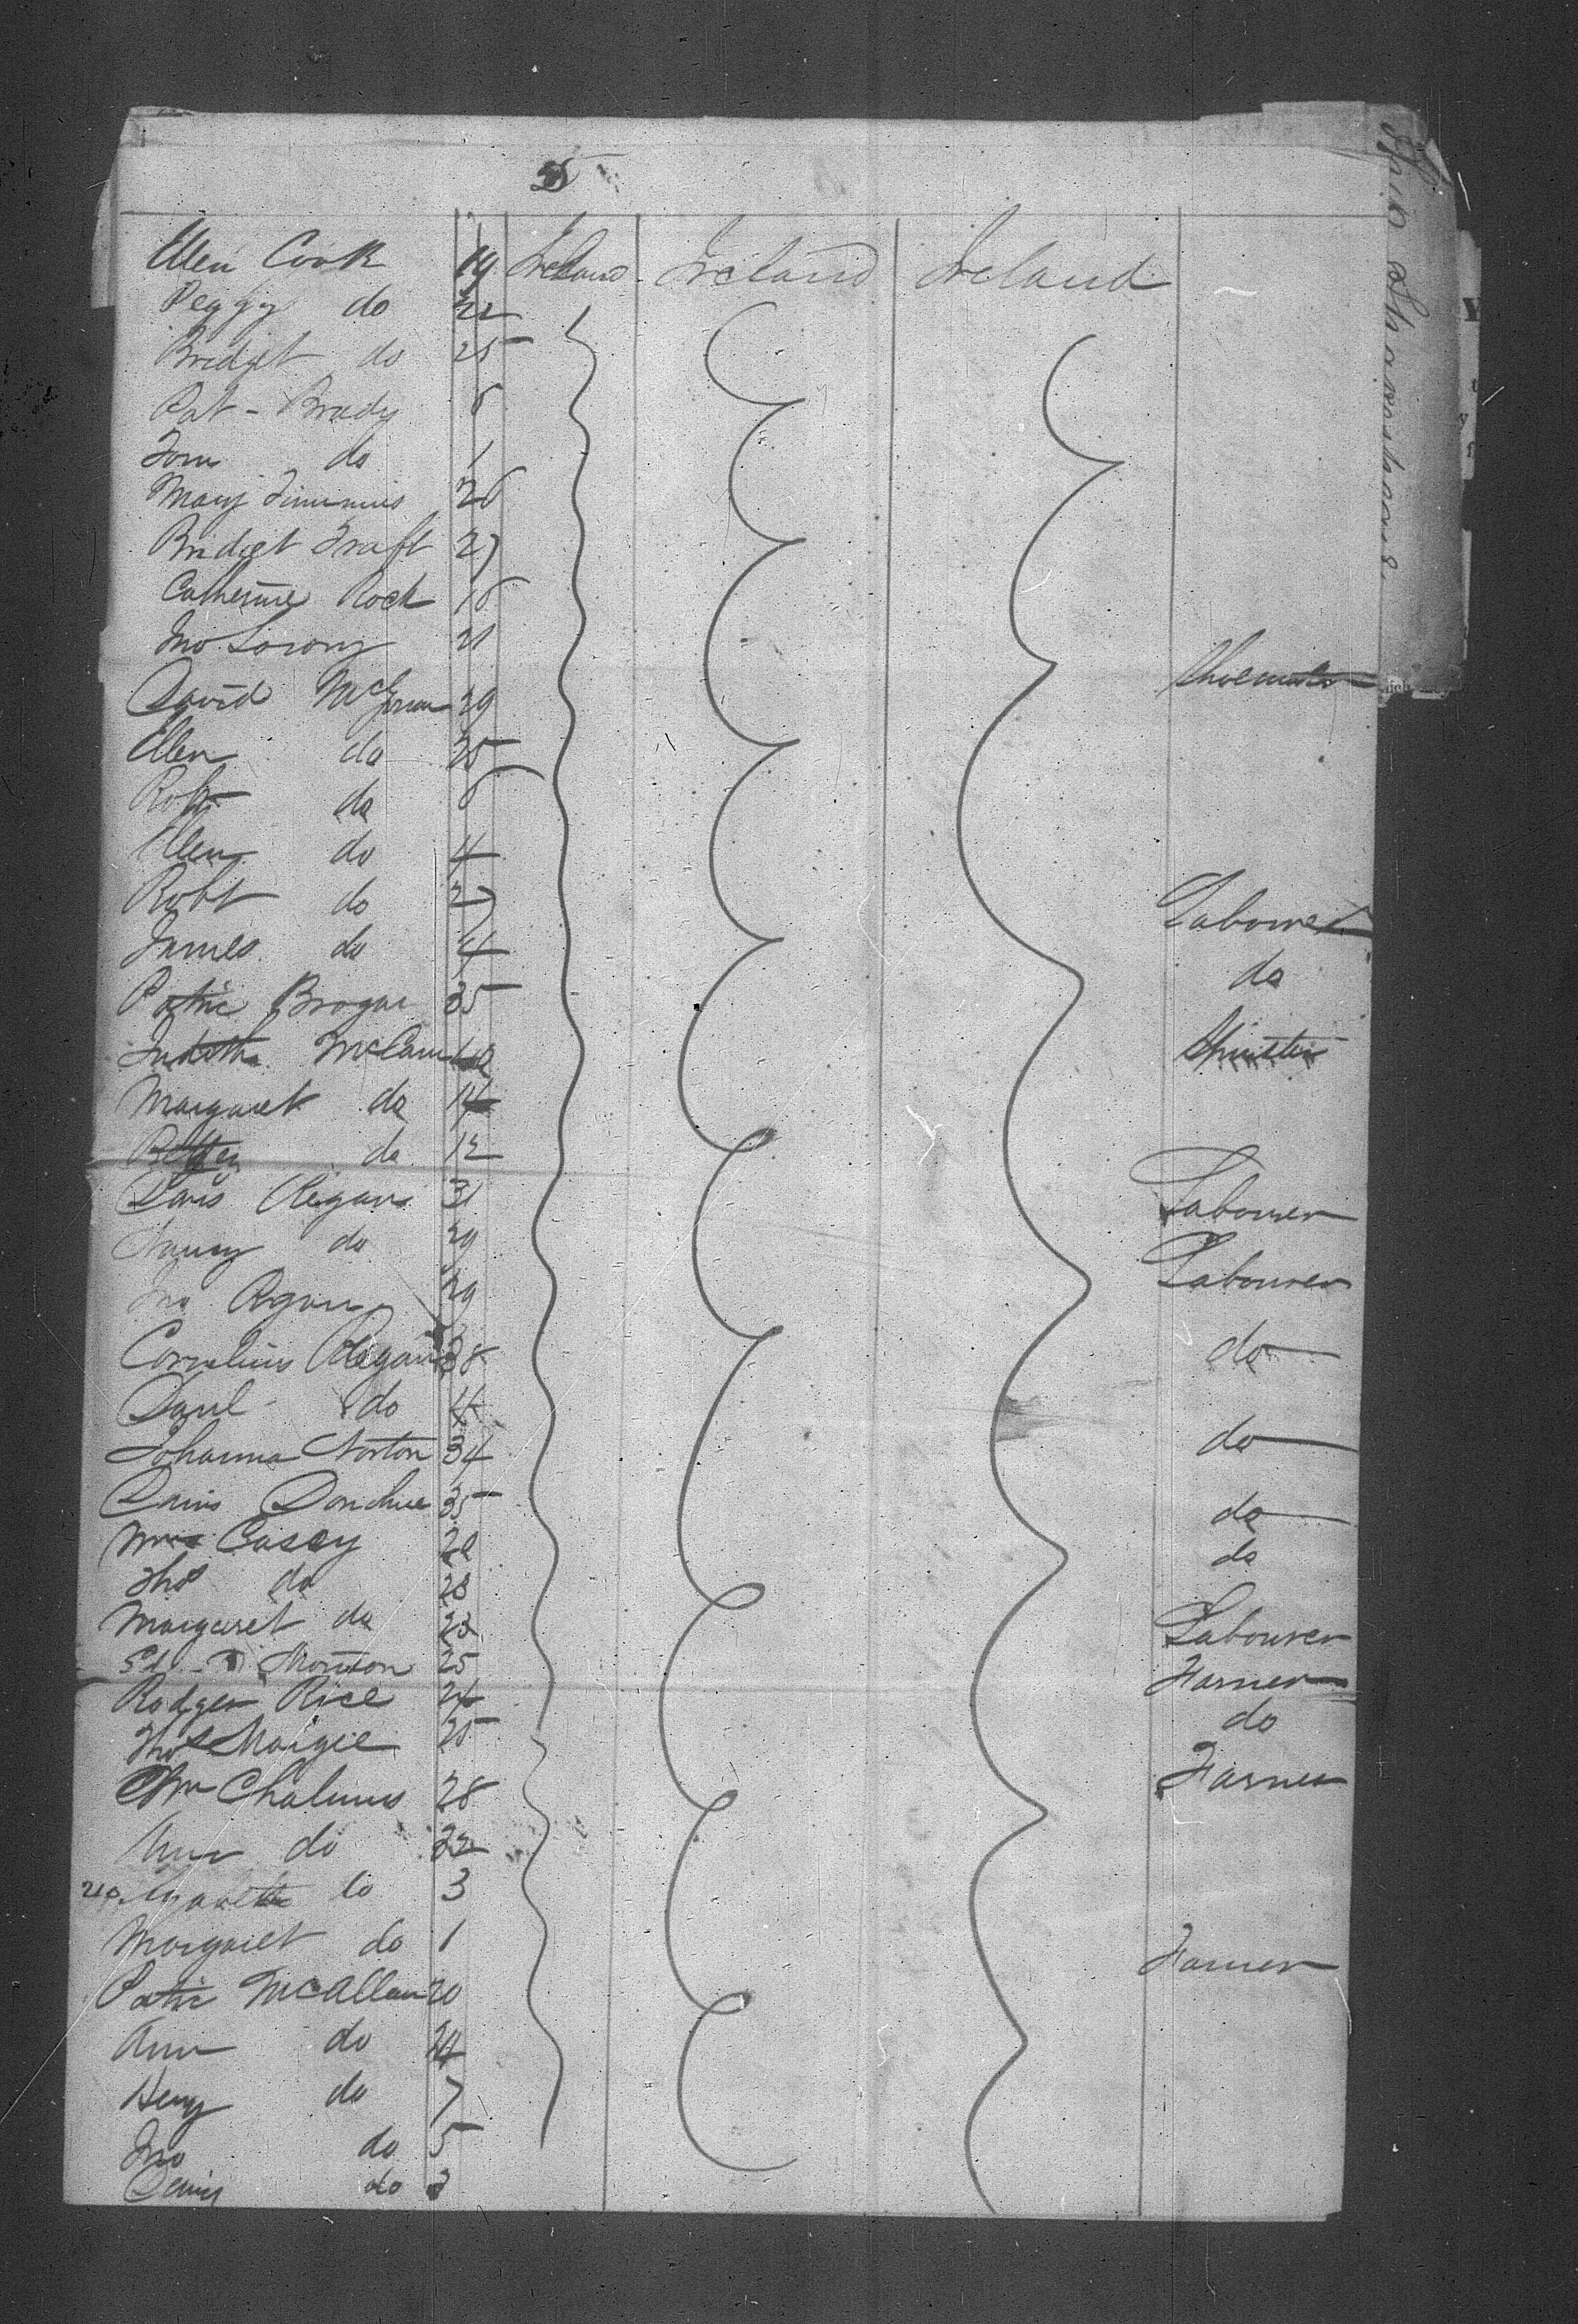 5
Ellen Cook 19 Ireland Ireland Ireland
Peggy do 22
Bridget do 25
Pat - Brady 6
Tom do 1
Mary Timmins 26
Bridget Traft 27
Catherine Rock 16
Jno 21
Shoemaker
David 29
Ellen do 25
Robt do 6
Ellen do 4
Robt do 27 Labourer
James do 4
Patric Brogan 35 do
Judith McCann Spinster
Margaret do 14
Bettey do 12
Regan 31 Labourer
Nancy do 29
Jno Regan 29 Labourer
Cornelius Regan 38 do
Danl do 4
Johanna Norton 34 do
Donohue 35 do
Casey 20 do
Thos do 28
Margaret do 23 Labourer
25 Farmer
Rodger Rice 24 do
Thos 25
Wm Chalmers 28 Farmer
Ann do 22
do 3
Margaret do 1
Patric McAllan 20 Farmer
Ann do 24
Henry do 7
Jno do 5
do 3
Ship